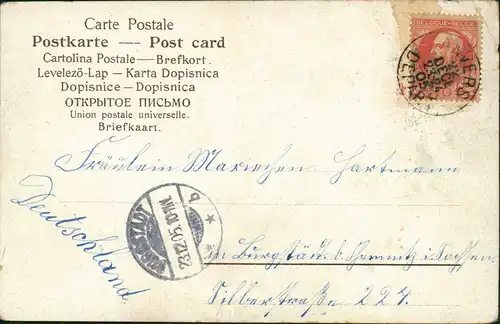 Carte Postale
Postkarte — Post card
Cartolina Postale — Brefkort.
Levelező-Lap — Karta Dopisnica
Dopisnice — Dopisnica
ОТКРЫТОЕ ПИСЬМО
Union postale universelle.
Briefkaart.
BELGIQUE-BELGIE
Fräulein Mariechen Hartmann
Deutschland
BURGSTÄDT
23.12.05.10-11V.
* b *
in Burgstädt b. Chemnitz i. Sachsen
Silberstraße 224.